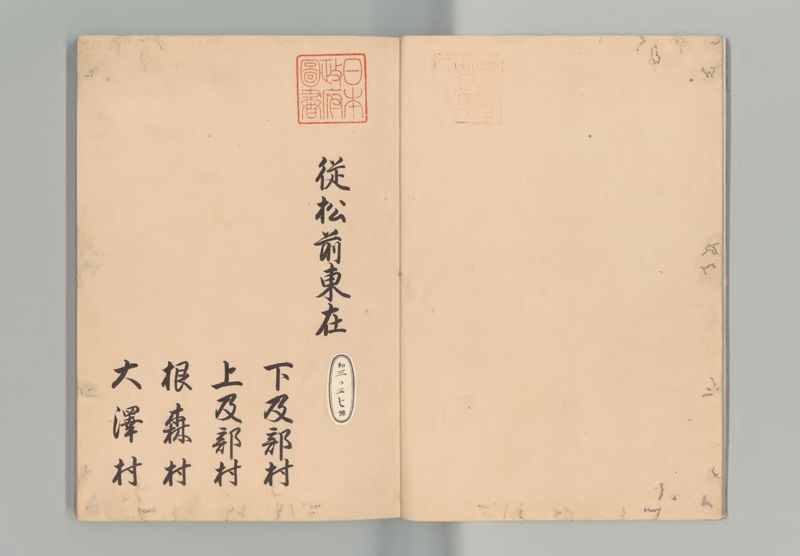 日本
政府
圖書
從松前東在
下及部村
上及部村
根森村
大澤村